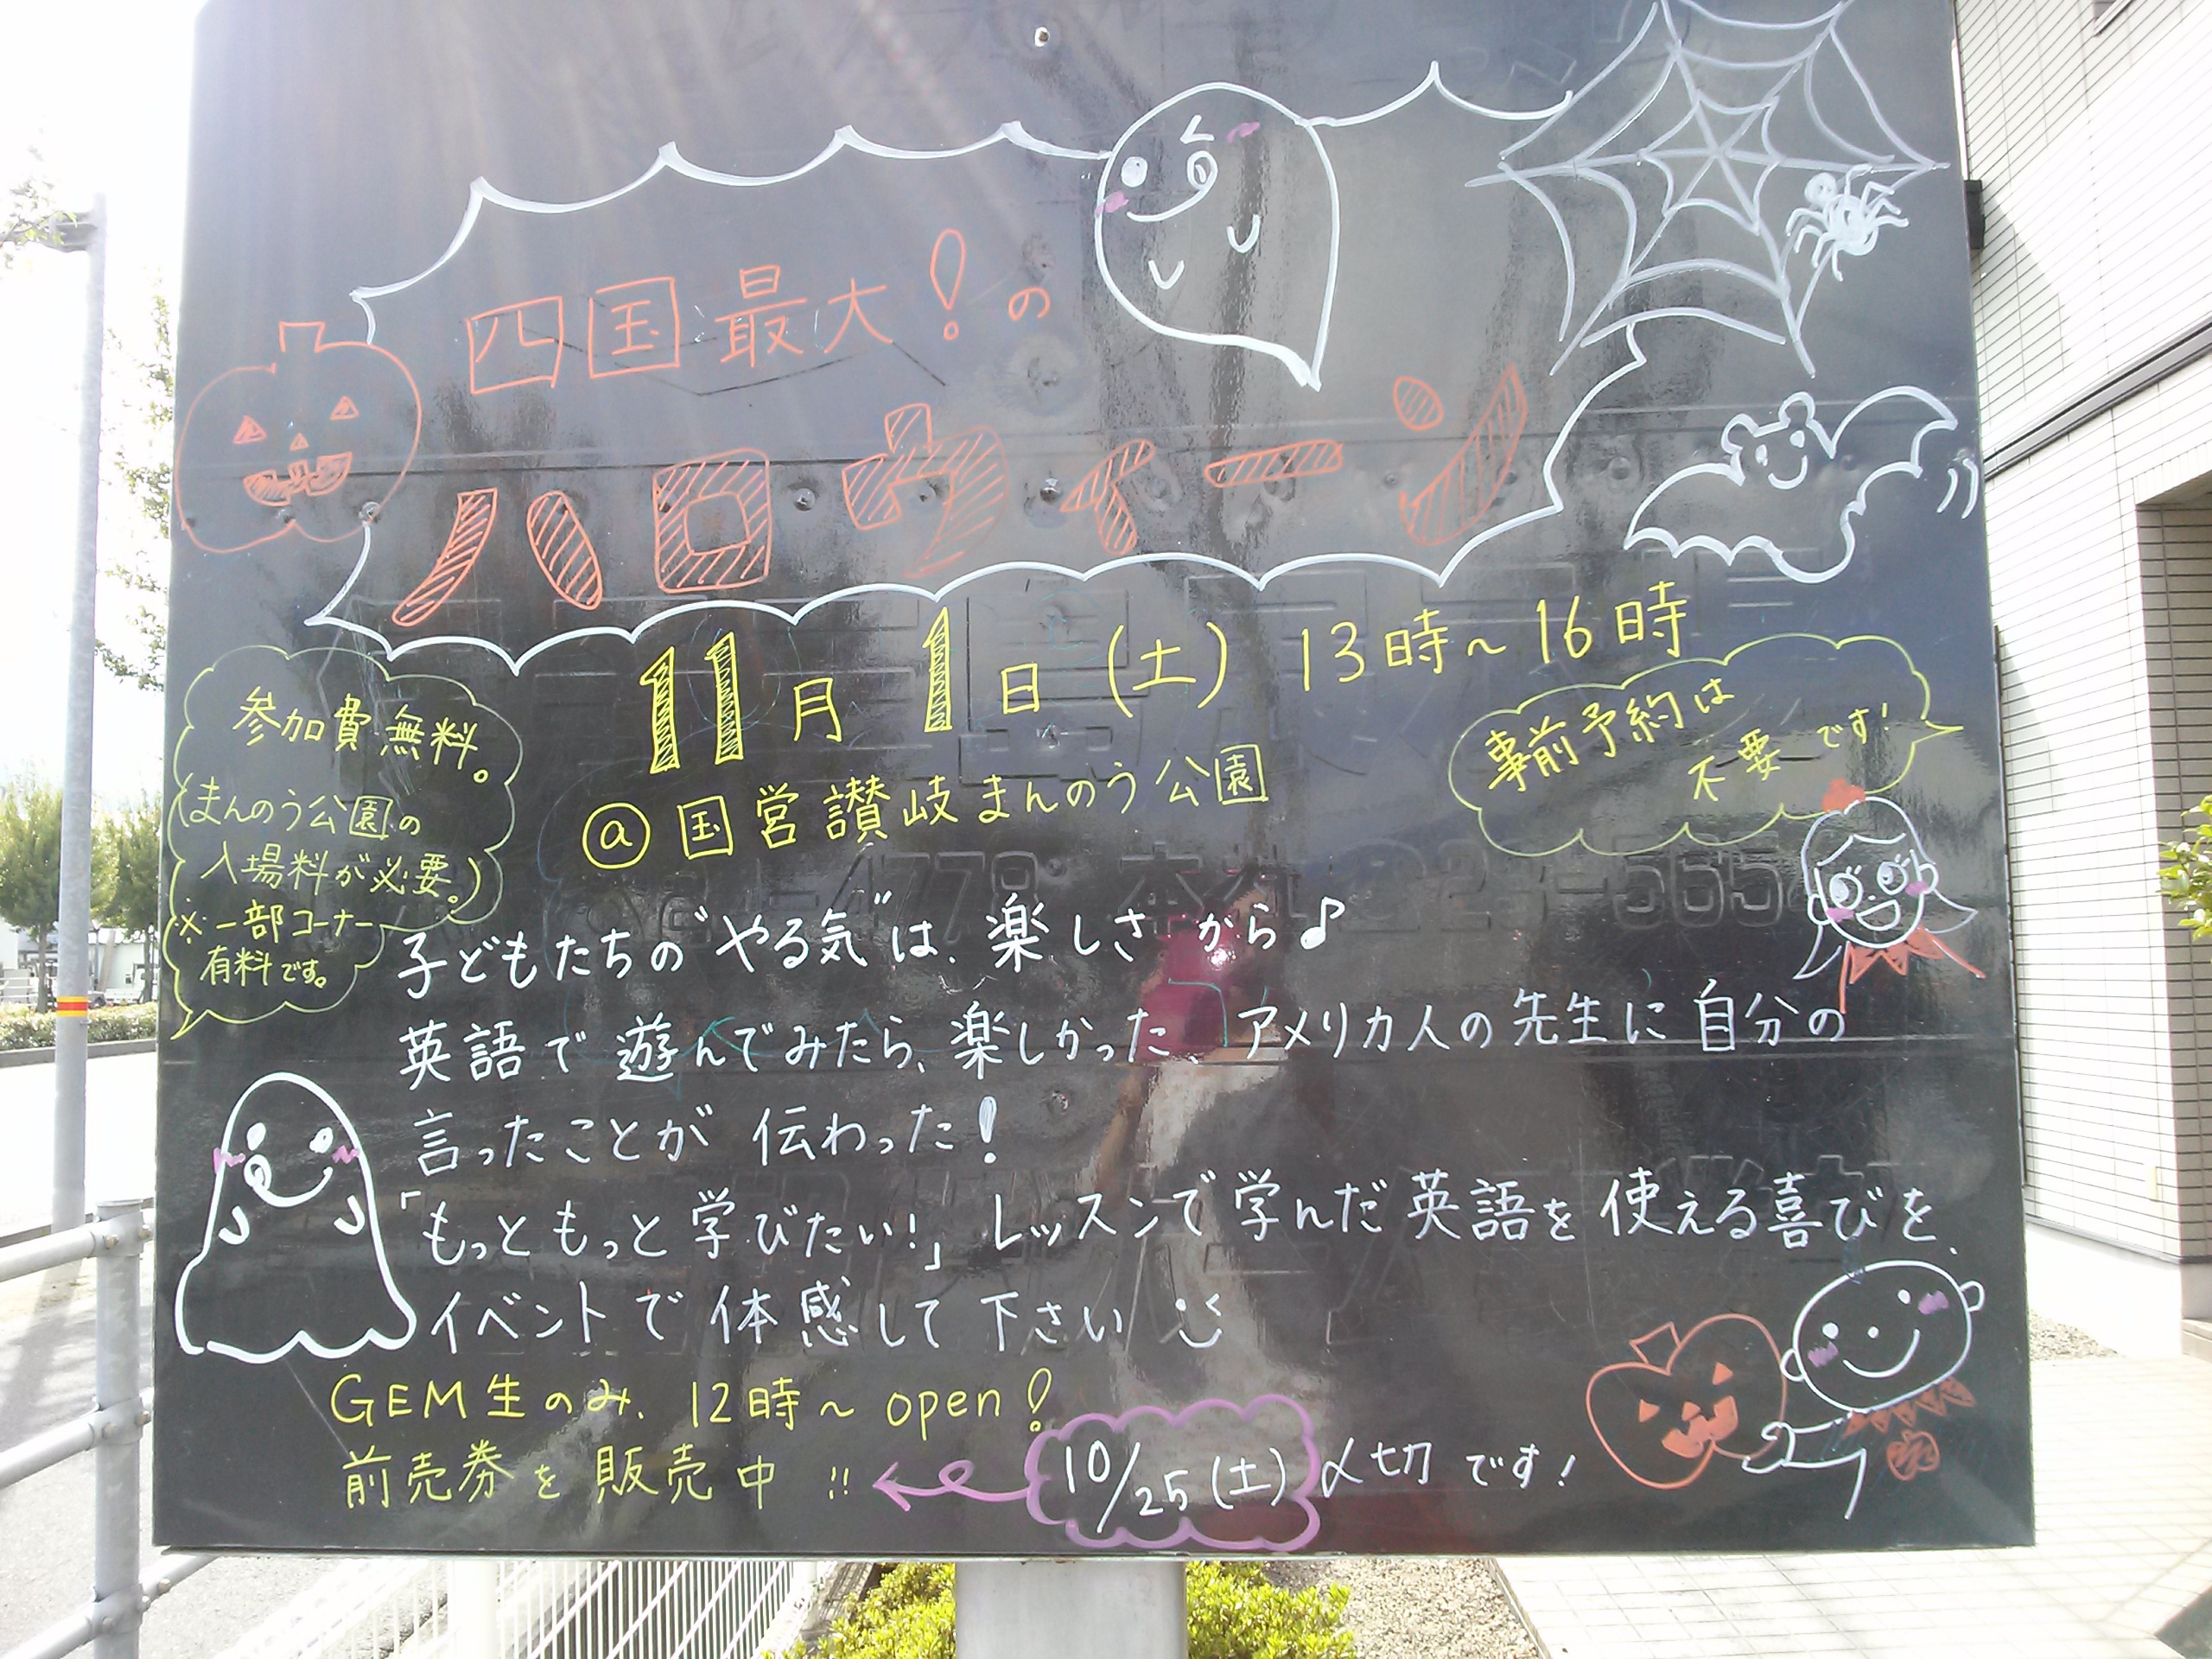 四国最大！の
ハロウィーン
11月1日(土) 13時～16時
@国営讃岐まんのう公園
参加費無料。
(まんのう公園の
入場料が必要。)
※一部コーナー
有料です。
事前予約は
不要です！
子どもたちの"やる気"は、楽しさから♪
英語で遊んでみたら、楽しかった、アメリカ人の先生に自分の
言ったことが伝わった！
「もっともっと学びたい！」レッスンで学んだ英語を使える喜びを、
イベントで体感して下さい
GEM生のみ、12時～open！
前売券を販売中!!
10/25(土)〆切です！